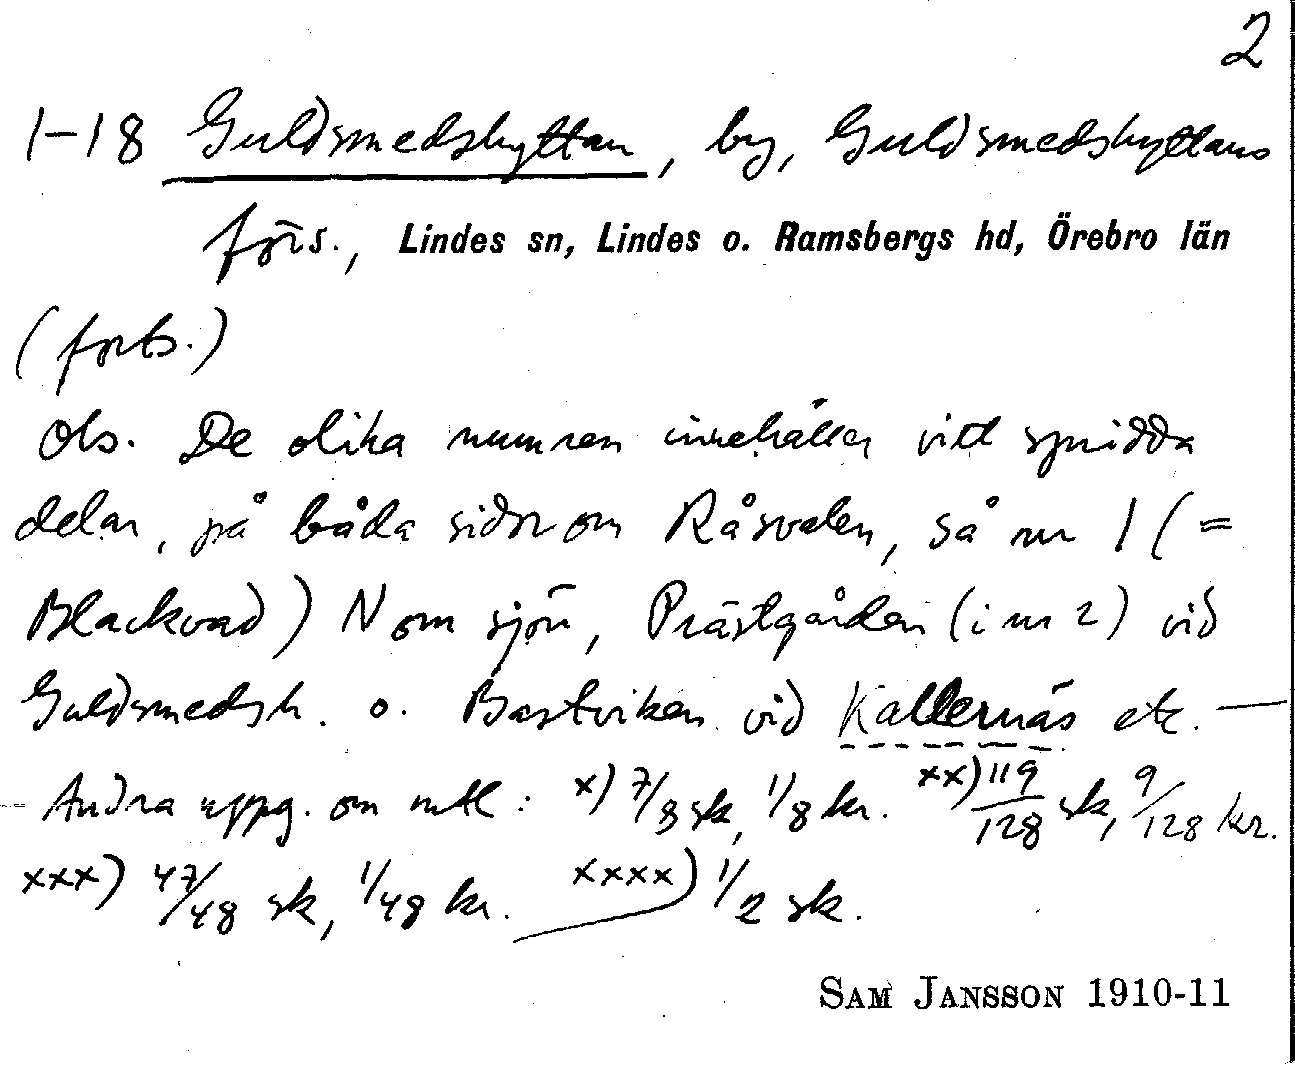 2
1-18 Guldsmedshyttan, by, Guldsmedshyttans
förs., Lindes sn, Lindes o. Ramsbergs hd, Örebro län
(forts.)
Obs. De olika numren innehåller vitt spridda
delar, på båda sidor om Råsvalen, så nr 1 (=
Blackvad) N om sjön, Prästgården (i nr 2) vid
Guldsmedsh. o. Bastviken vid Källernäs etc. —
Andra uppg. om mtl: x) 7/8 sk, 1/8 kr. xx) 119/128 sk, 9/128 kr.
xxx) 47/48 sk, 1/48 kr. xxxx) 1/2 sk.
SAM JANSSON 1910-11